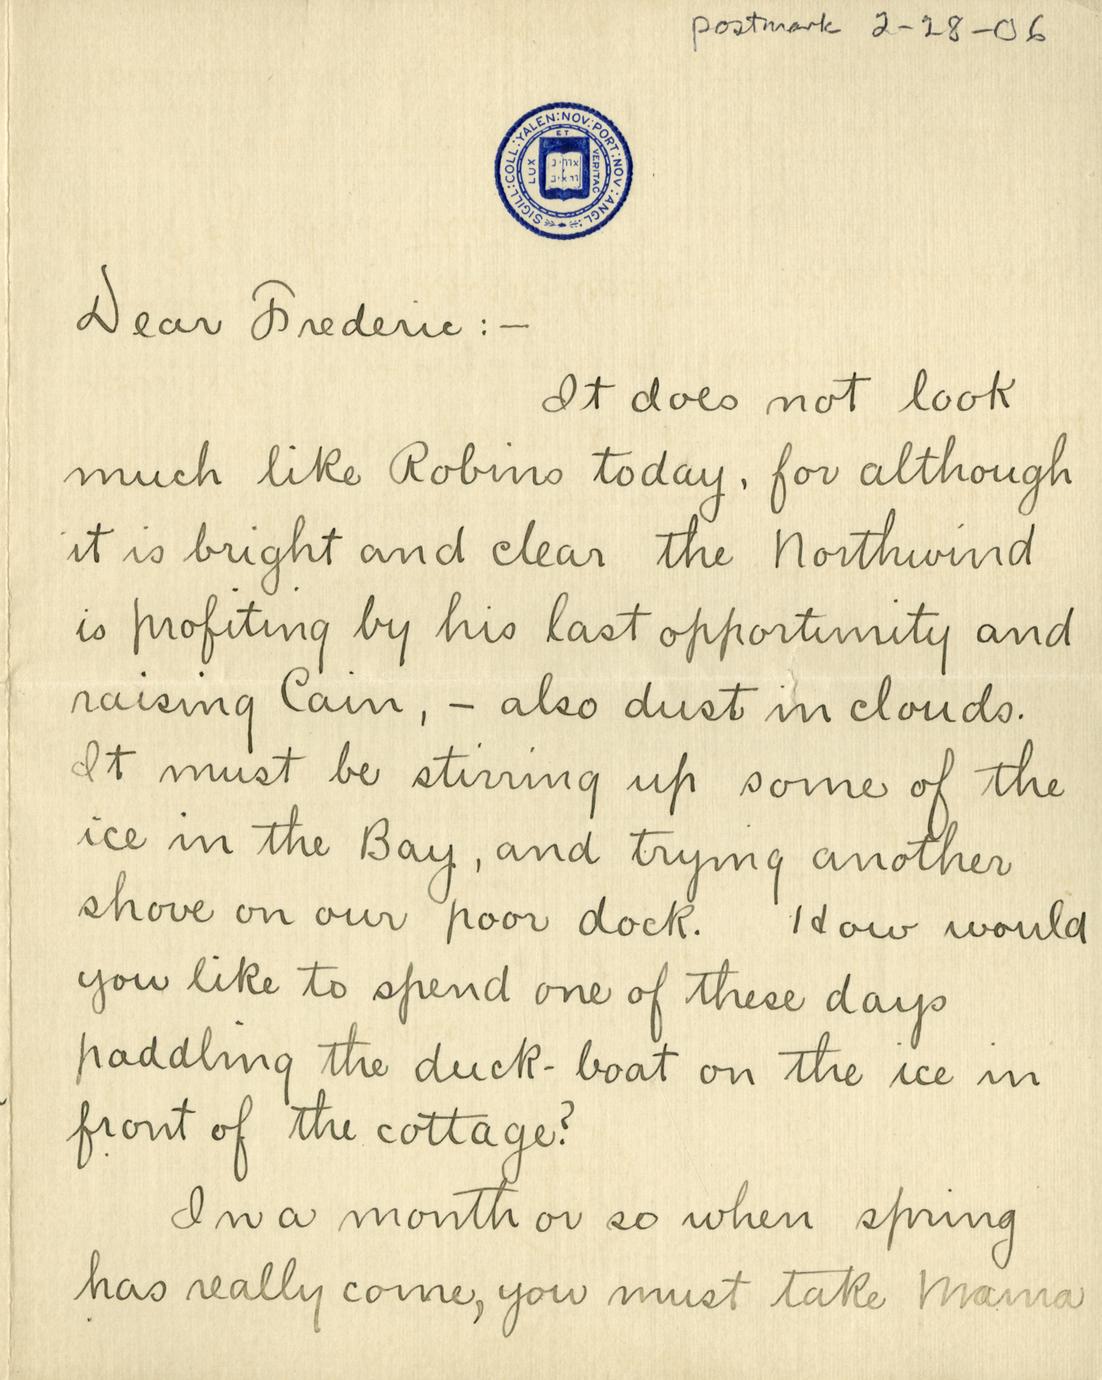 postmark 2-28-06
SIGILL:COLL:YALEN:NOV:PORT:NOV:ANGL:
LUX ET VERITAS
Dear Frederic :—
It does not look
much like Robins today, for although
it is bright and clear the Northwind
is profiting by his last opportunity and
raising Cain, – also dust in clouds.
It must be stirring up some of the
ice in the Bay, and trying another
shove on our poor dock. How would
you like to spend one of these days
paddling the duck-boat on the ice in
front of the cottage?
In a month or so when spring
has really come, you must take Mama